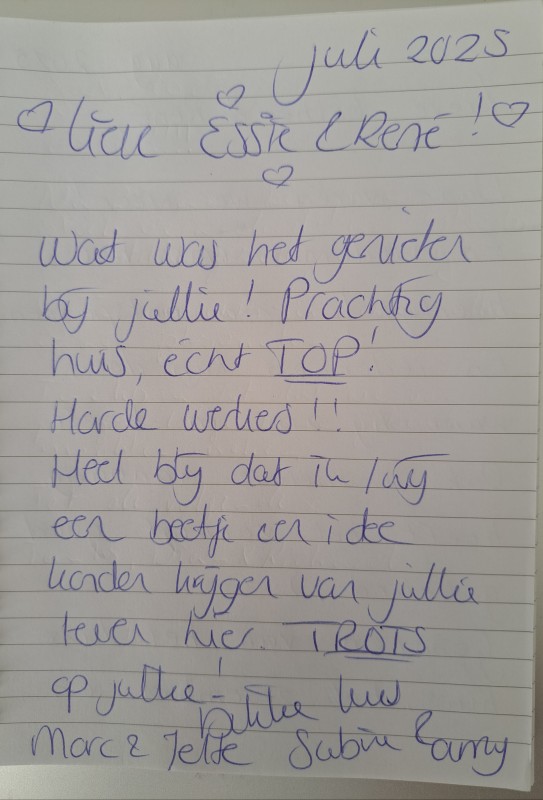 juli 2025
Lieve Essie & René!
Wat was het genieten
bij jullie! Prachtig
huis, écht TOP!
Harde werkers!!
Heel blij dat ik/wij
een beetje een idee
konden krijgen van jullie
leven hier. TROTS
op jullie!
dikke kus
Marc & Jelte Sabine & amy